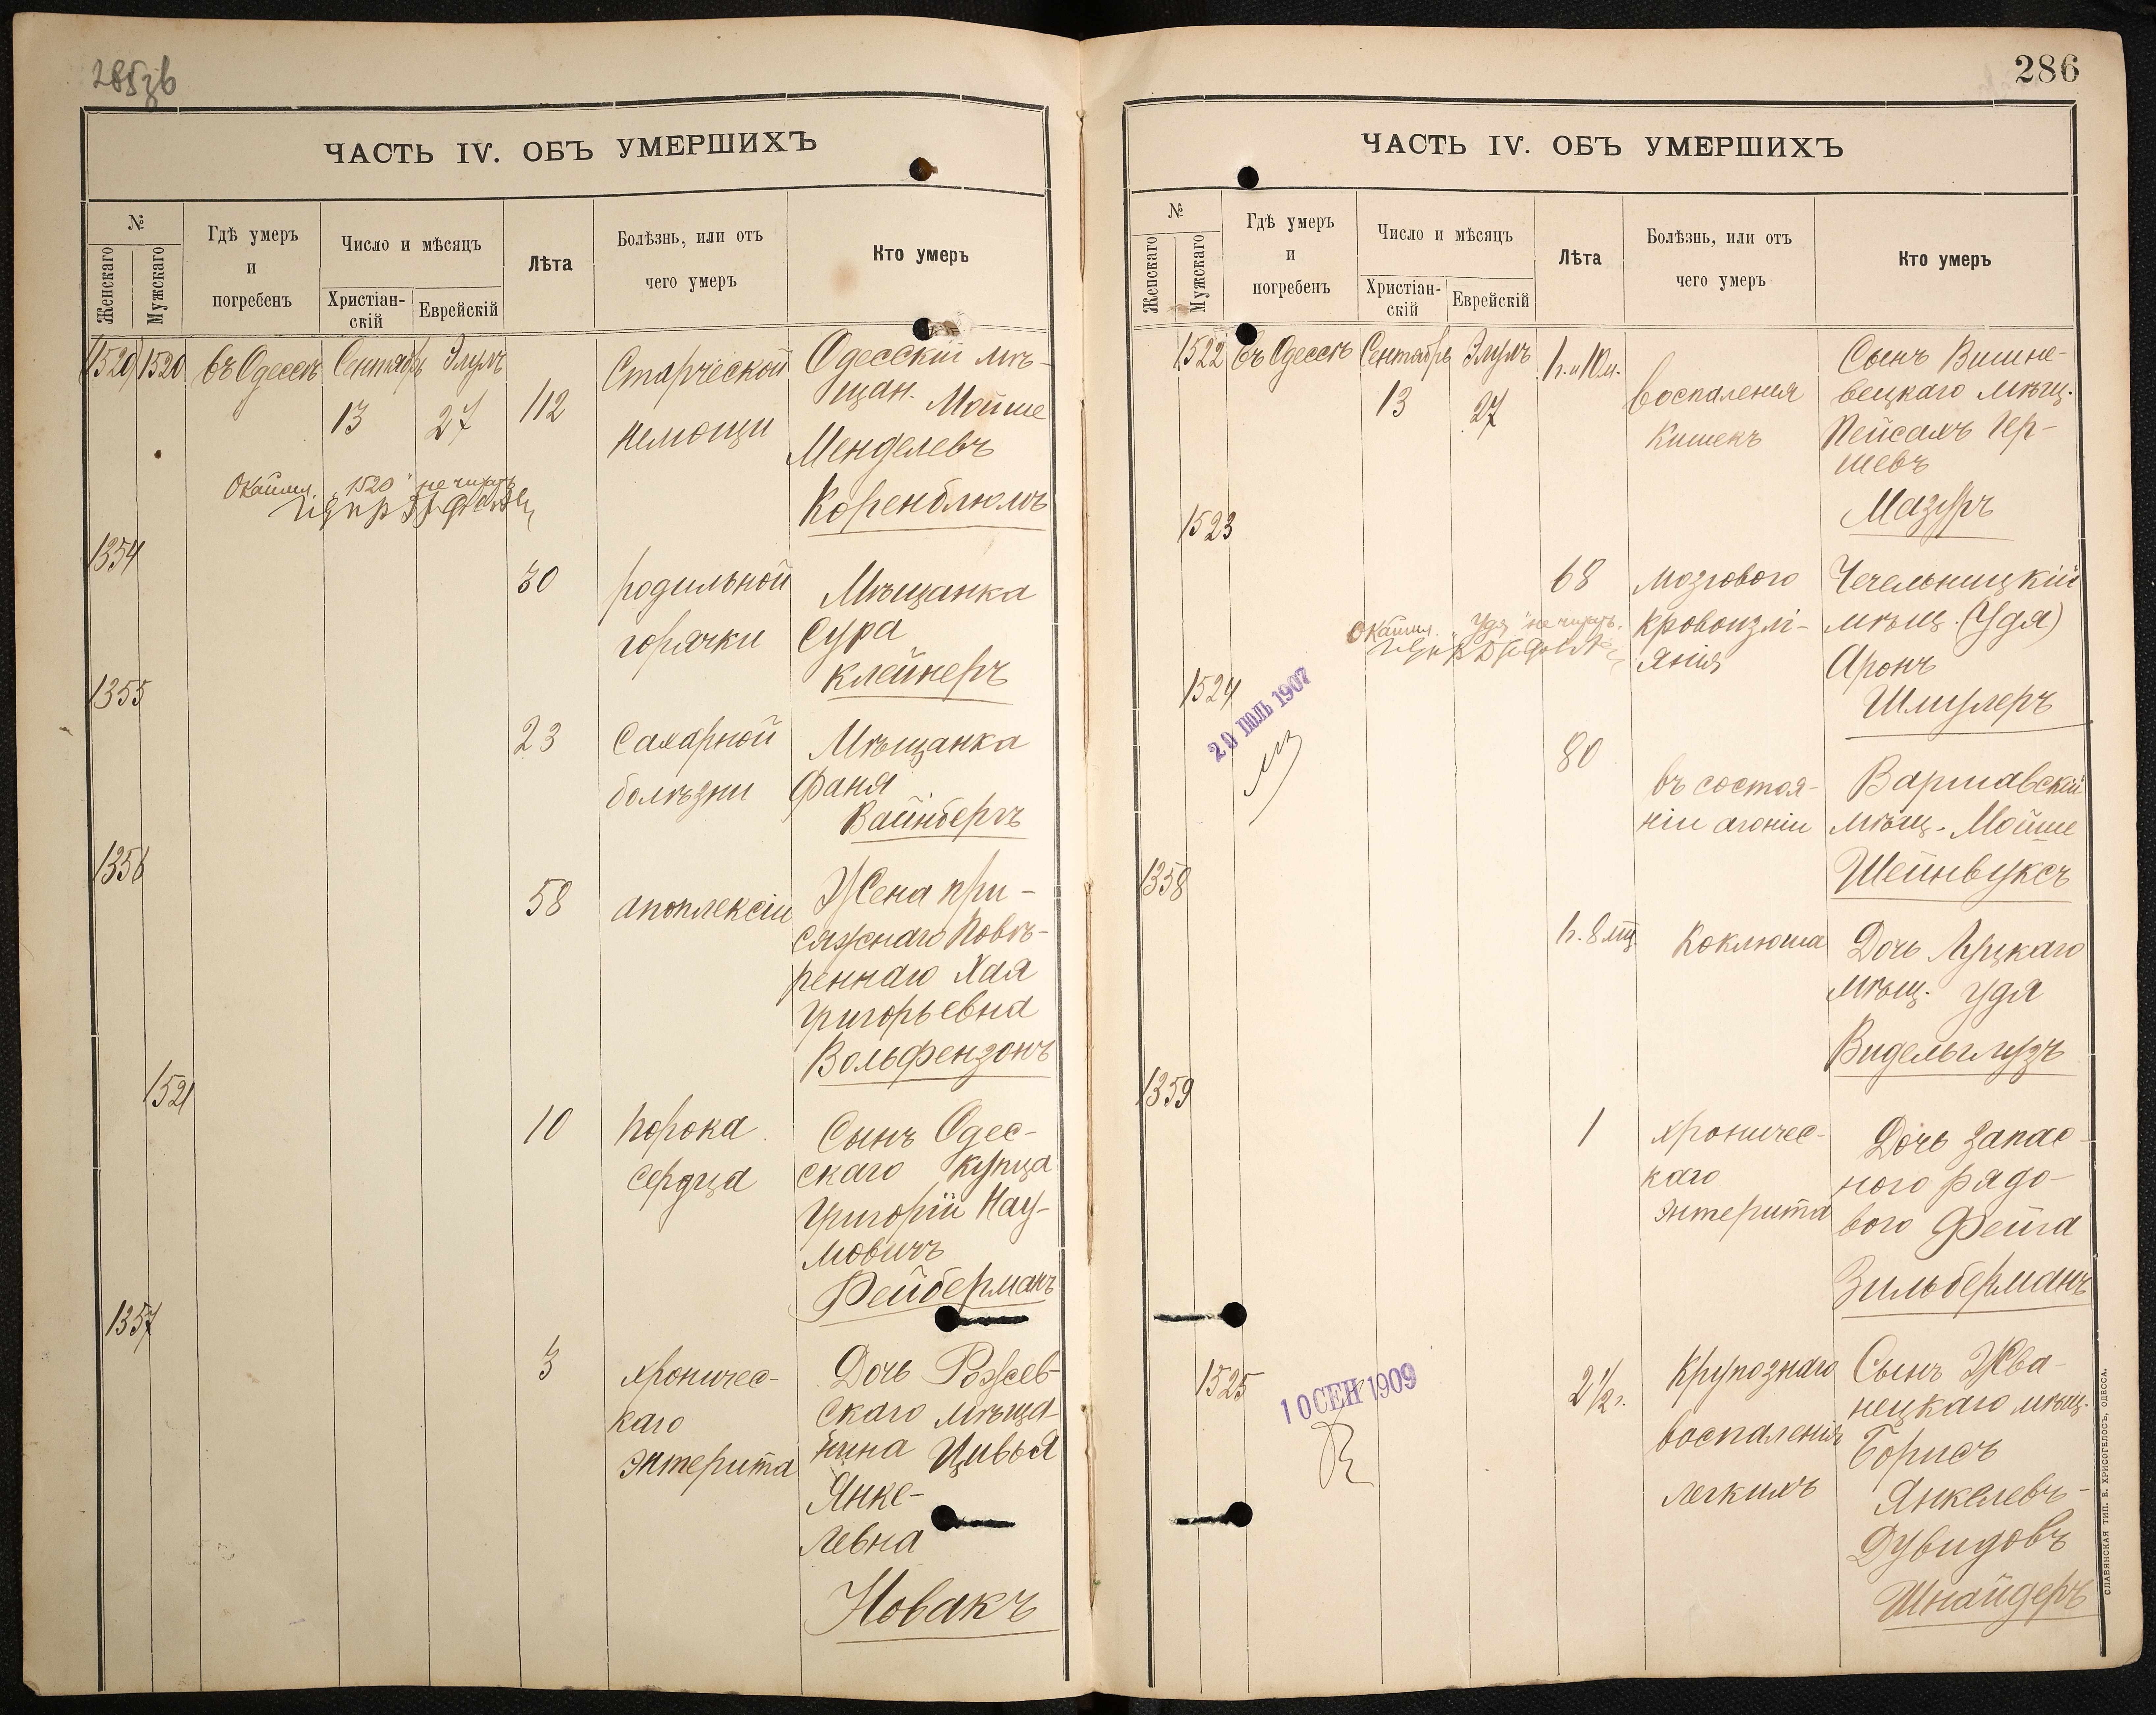 285зв
ЧАСТЬ IV. ОБЪ УМЕРШИХЪ
№
Женскаго
Мужскаго
Гдѣ умеръ
и
погребенъ
Число и мѣсяцъ
Христіан-
скій
Еврейскій
Лѣта
Болѣзнь, или отъ
чего умеръ
Кто умеръ
(1520) 1520 въ Одессѣ Сентябрь Элулъ
13 27 112
Старческой
немощи
Одесскій мѣ-
щан. Мойше
Менделевъ
Коренблюмъ
Окаймл. "1520" не читать
1354
30
родильной
горячки
Мѣщанка
Сура
Клейнеръ
1355
23
Сахарной
болѣзни
Мѣщанка
Фаня
Вайнбергъ
1356
58
апоплексіи
Жена при-
сяжнаго Повѣ-
реннаго Хая
Григорьевна
Вольфензонъ
1521
10
порока
сердца
Сынъ Одес-
скаго купца
Григорій Нау-
мовичъ
Фейберманъ
1357
3
хроничес-
каго
энтерита
Дочь Рожев-
скаго мѣща-
нина Цивья
Янке-
левна
Новакъ
286
ЧАСТЬ IV. ОБЪ УМЕРШИХЪ
№
Женскаго
Мужскаго
Гдѣ умеръ
и
погребенъ
Число и мѣсяцъ
Христіан-
скій
Еврейскій
Лѣта
Болѣзнь, или отъ
чего умеръ
Кто умеръ
1522 въ Одессѣ Сентябрь Элулъ 1г. и 10м.
13 27
воспаленія
кишекъ
Сынъ Вишне-
вецкаго мѣщ.
Пейсахъ Гер-
шевъ
Мазуръ
1523
68
мозгового
кровоизлі-
янія
Чечельницкій
мѣщ. (Удя)
Аронъ
Шмулеръ
Окаймл. "Удя" не читать.
1524
20 ІЮЛЬ 1907
80
въ состоя-
ніи агоніи
Варшавскій
мѣщ. Мойше
Шейнвуксъ
1358
1г. 8 мц
Коклюша
Дочь Луцкаго
мѣщ. Удя
Видельглузъ
1359
1
хроничес-
каго
энтерита
Дочь запас-
ного рядо-
вого Фейга
Зильберманъ
1525
10 СЕН 1909
2 1/2 г.
Крупознаго
воспаленія
легкихъ
Сынъ Жва-
нецкаго мѣщ.
Борисъ
Янкелевъ-
Дувидовъ
Шнайдеръ
СЛАВЯНСКАЯ ТИП. Е. ХРИСОГЕЛОСЪ, ОДЕССА.